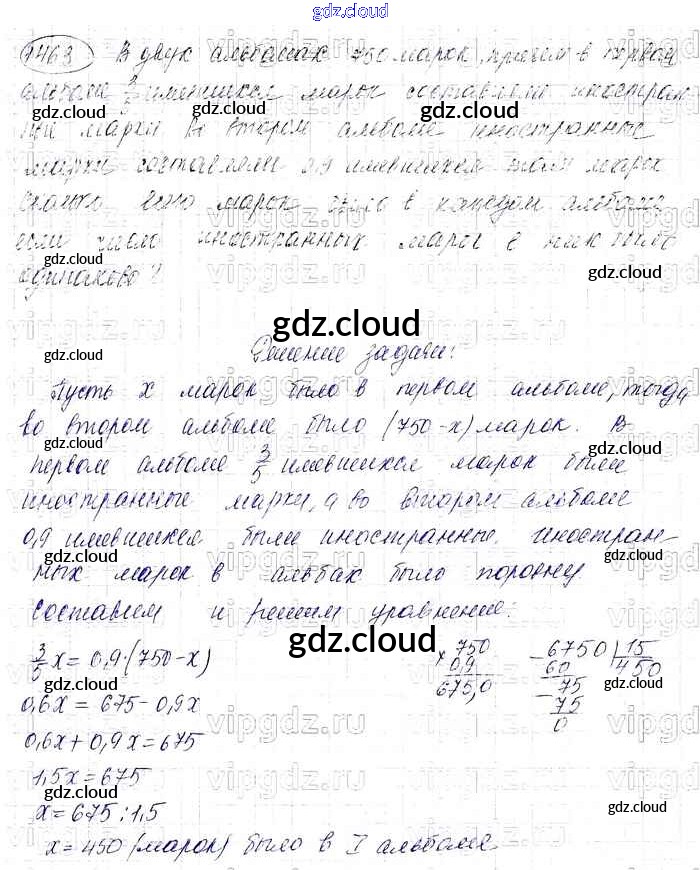 gdz.cloud
1463 В двух альбомах 750 марок, причём в первом
альбоме 3/5 имевшихся марок составляли иностран-
ные марки. Во втором альбоме иностранные
марки составляли 0,9 имевшихся там марок.
Сколько всего марок было в каждом альбоме,
если число иностранных марок в них было
одинаково?
gdz.cloud
Решение задачи:
Пусть x марок было в первом альбоме, тогда
во втором альбоме было (750-x) марок. В
первом альбоме 3/5 имевшихся марок были
иностранные марки, а во втором альбоме
0,9 имевшихся были иностранные. Иностран-
ных марок в альбах было поровну.
Составим и решим уравнение:
3/5 x = 0,9·(750-x)
0,6x = 675-0,9x
0,6x+0,9x=675
1,5x=675
x=675:1,5
x=450 (марок) было в I альбоме
× 750
0,9
675,0
6750 | 15
60 450
75
75
0
gdz.cloud
vipgdz.ru